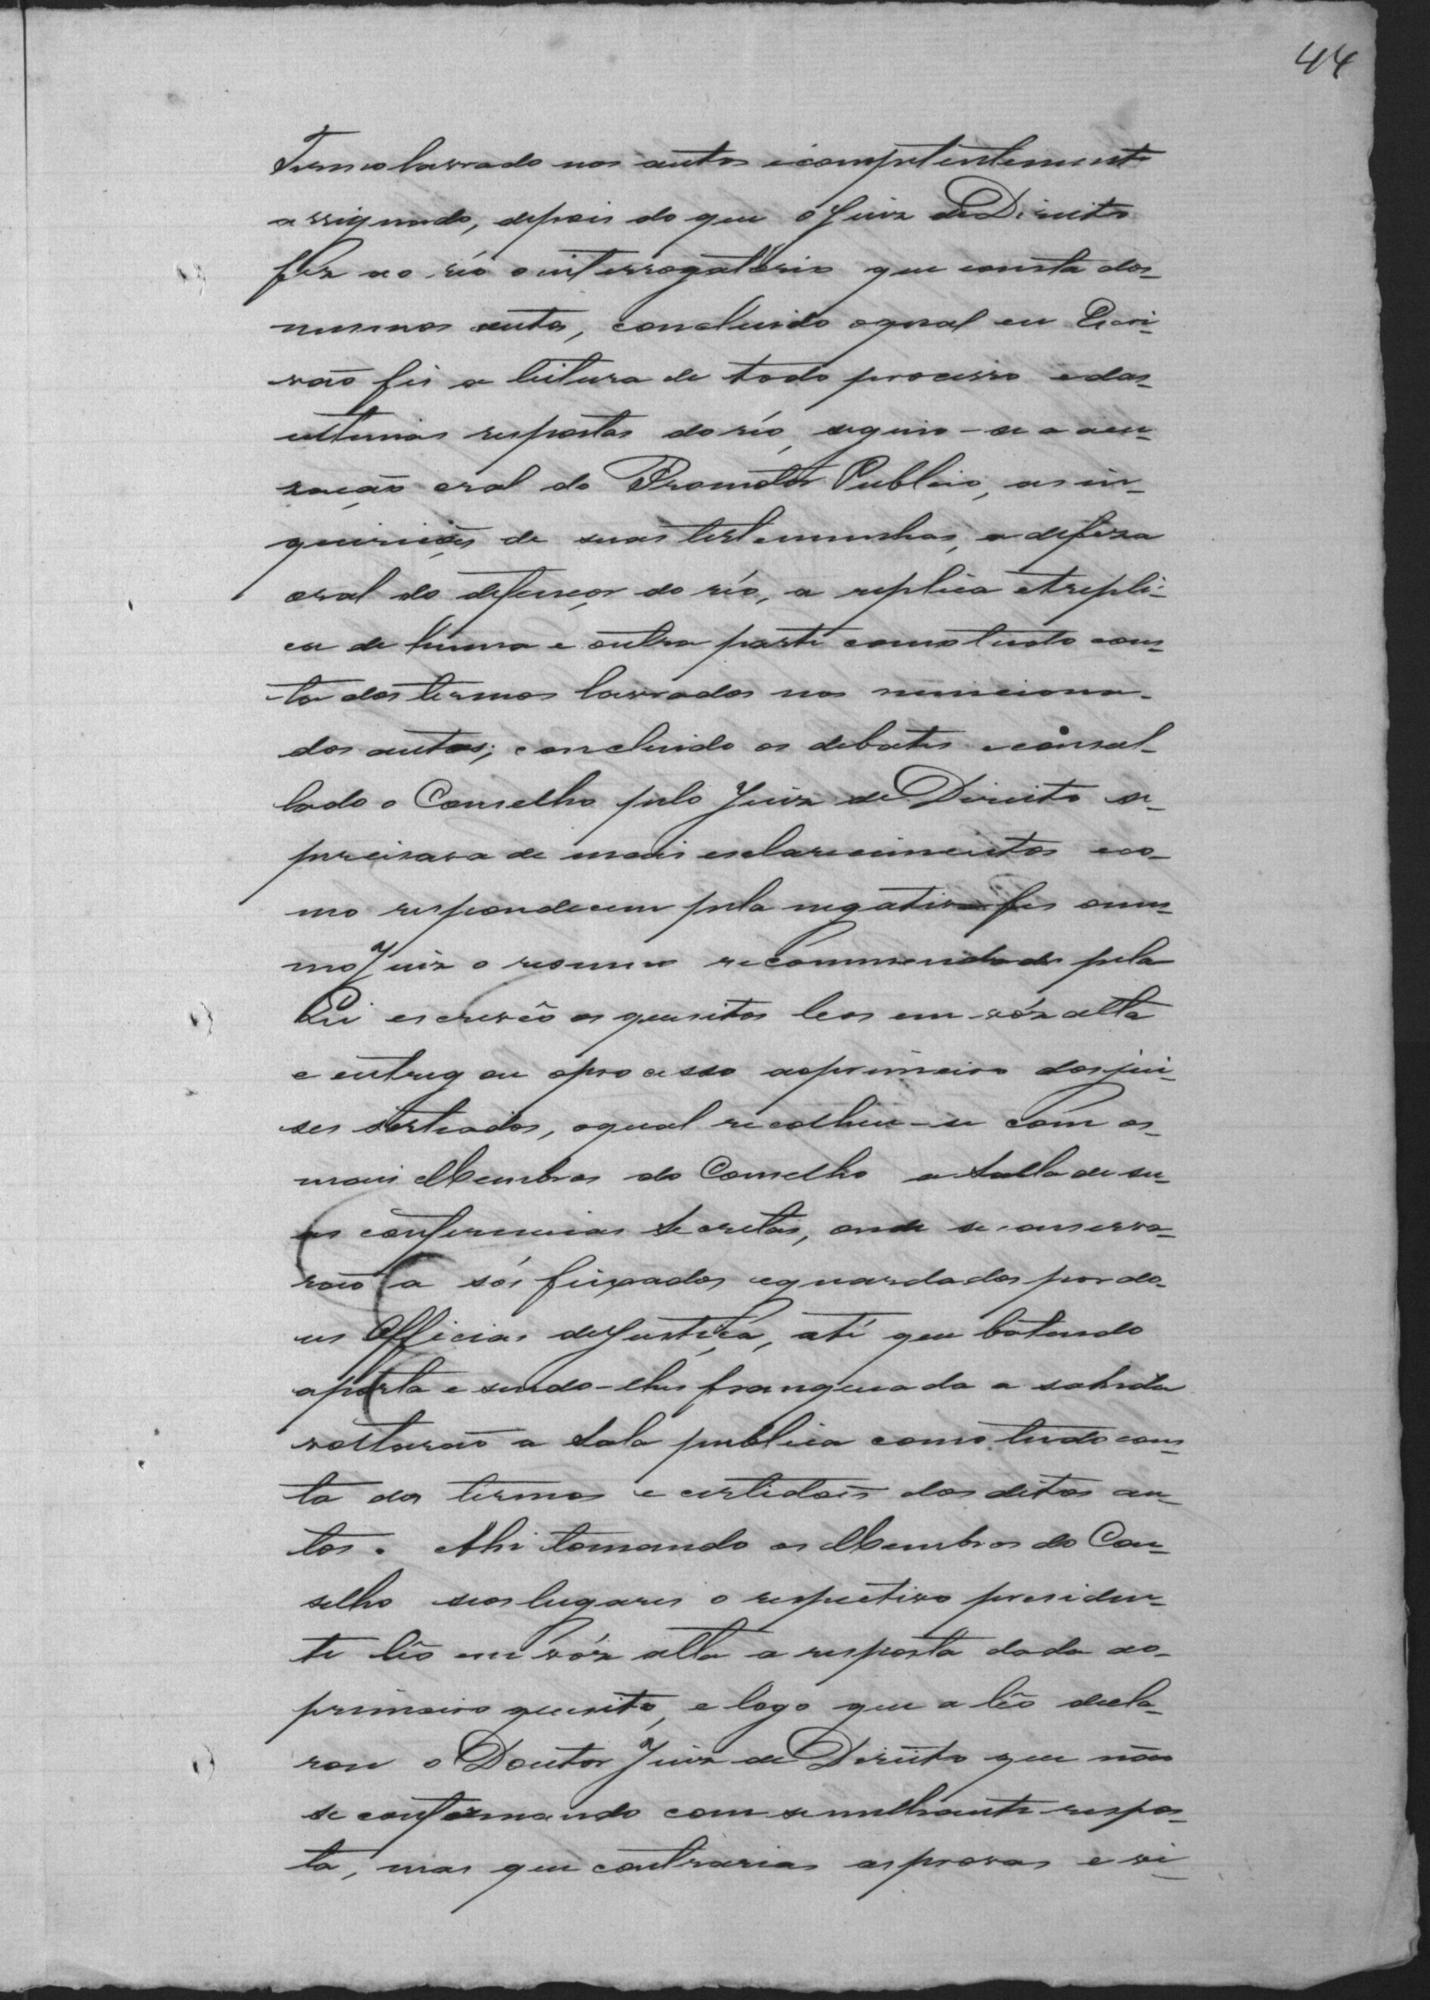 44
Termo lavrado nos autos e competentemente
assignado, depois do que o Juiz de Direito
fez ao réo o interrogatorio que consta dos
mesmos autos, concluido o qual eu Escri-
vão fis a leitura de todo processo e das
ultimas respostas do réo, seguio-se a accu-
sação oral do Promotor Publico, as in-
quirições de suas testemunhas, a defeza
oral do defençor do réo, a replica e trepli-
ca de huma e outra parte como tudo cons-
ta dos termos lavrados nos menciona-
dos autos; concluido os debates e consul-
tado o Conselho pelo Juiz de Direito se
precisava de mais esclarecimentos e co-
mo respondecem pela negativa fes o mes-
mo Juiz o resumo recommendado pela
Lei escrevêo os quesitos leos em vóz alta
e entregou o processo ao primeiro dos jui-
ses sorteados, o qual recolheu-se com os
mais Membros do Conselho a Salla de su-
as conferencias Secretas, onde se conserva-
rão a sós feixados e guardados por do-
us Officias de Justiça, até que batendo
a porta e sendo-lhes franqueada a sahida
voltarão a Sala publica como tudo cons-
ta dos termos e certidões dos ditos au-
tos. Ahi tomando os Membros do Con-
selho seos lugares o respectivo presiden-
te lêo em vóz alta a resposta dada ao
primeiro quesito, e logo que a lêo decla-
rou o Doutor Juiz de Direito que não
se conformando com semelhante respos-
ta, mas que contrarias as provas e vi-